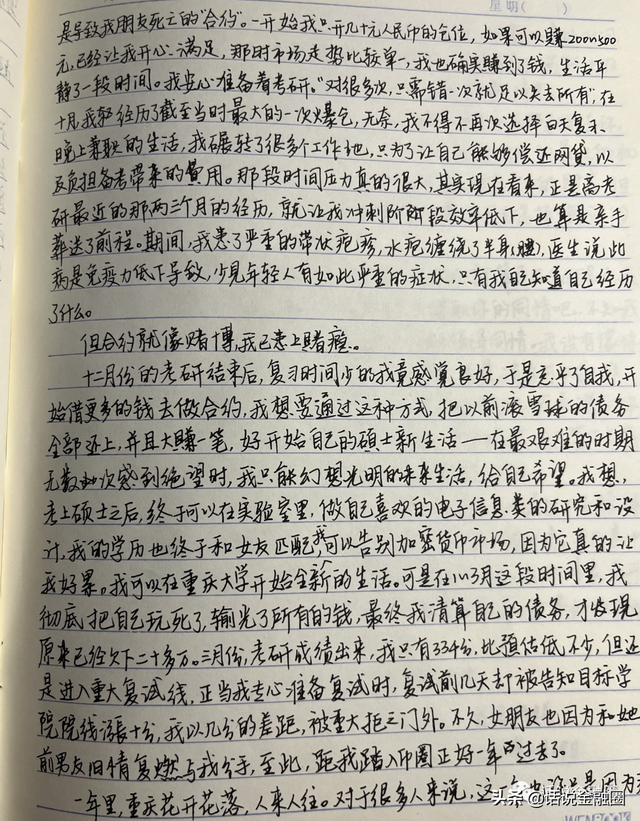 星期( )
是导致我朋友死亡的"合约"。一开始我只开几十元人民币的仓位，如果可以赚200元500
元，已经让我开心、满足，那时市场走势比较单一，我也确实赚到了钱，生活平
静了一段时间。我安心准备着考研。"对很多次，只需错一次就足以失去所有"，在
十月，我经历了截至当时最大的一次爆仓，无奈，我不得不再次选择白天复习、
晚上兼职的生活，我辗转了很多个工作地，只为了让自己能够偿还网贷，以
及负担备考带来的费用。那段时间压力真的很大，其实现在看来，正是离考
研最近的那两三个月的经历，就让我冲刺阶段效率低下，也算是亲手
葬送了前程。期间，我患了严重的带状疱疹，水疱缠绕了半身(腰)，医生说此
病是免疫力低下导致，少见年轻人有如此严重的症状，只有我自己知道自己经历
了什么。
但合约就像赌博，我已患上赌瘾。
十二月份的考研结束后，复习时间少的我竟感觉良好，于是忘乎了自我，开
始借更多的钱去做合约，我想要通过这种方式，把以前滚雪球的债务
全部还上，并且大赚一笔，好开始自己的硕士新生活——在最艰难的时期
无数次感到绝望时，我只能幻想光明的未来生活，给自己希望。我想，
考上硕士之后，终于可以在实验室里，做自己喜欢的电子信息类的研究和设
计，我的学历也终于和女友匹配，我可以告别加密货币市场，因为它真的让
我好累。我可以在重庆大学开始全新的生活。可是在1~3月这段时间里，我
彻底把自己玩死了，输光了所有的钱，最终我清算自己的债务，才发现
原来已经欠下二十多万。三月份，考研成绩出来，我只有334分，比预估低不少，但还
是进入重大复试线，正当我专心准备复试时，复试前几天却被告知目标学
院院线涨十分，我以几分的差距，被重大拒之门外。不久，女朋友也因为和她
前男友旧情复燃与我分手，至此，距我踏入币圈正好一年过去了。
一年里，重庆花开花落，人来人往。对于很多人来说，这一年也许只是因为
头条@话说金融圈